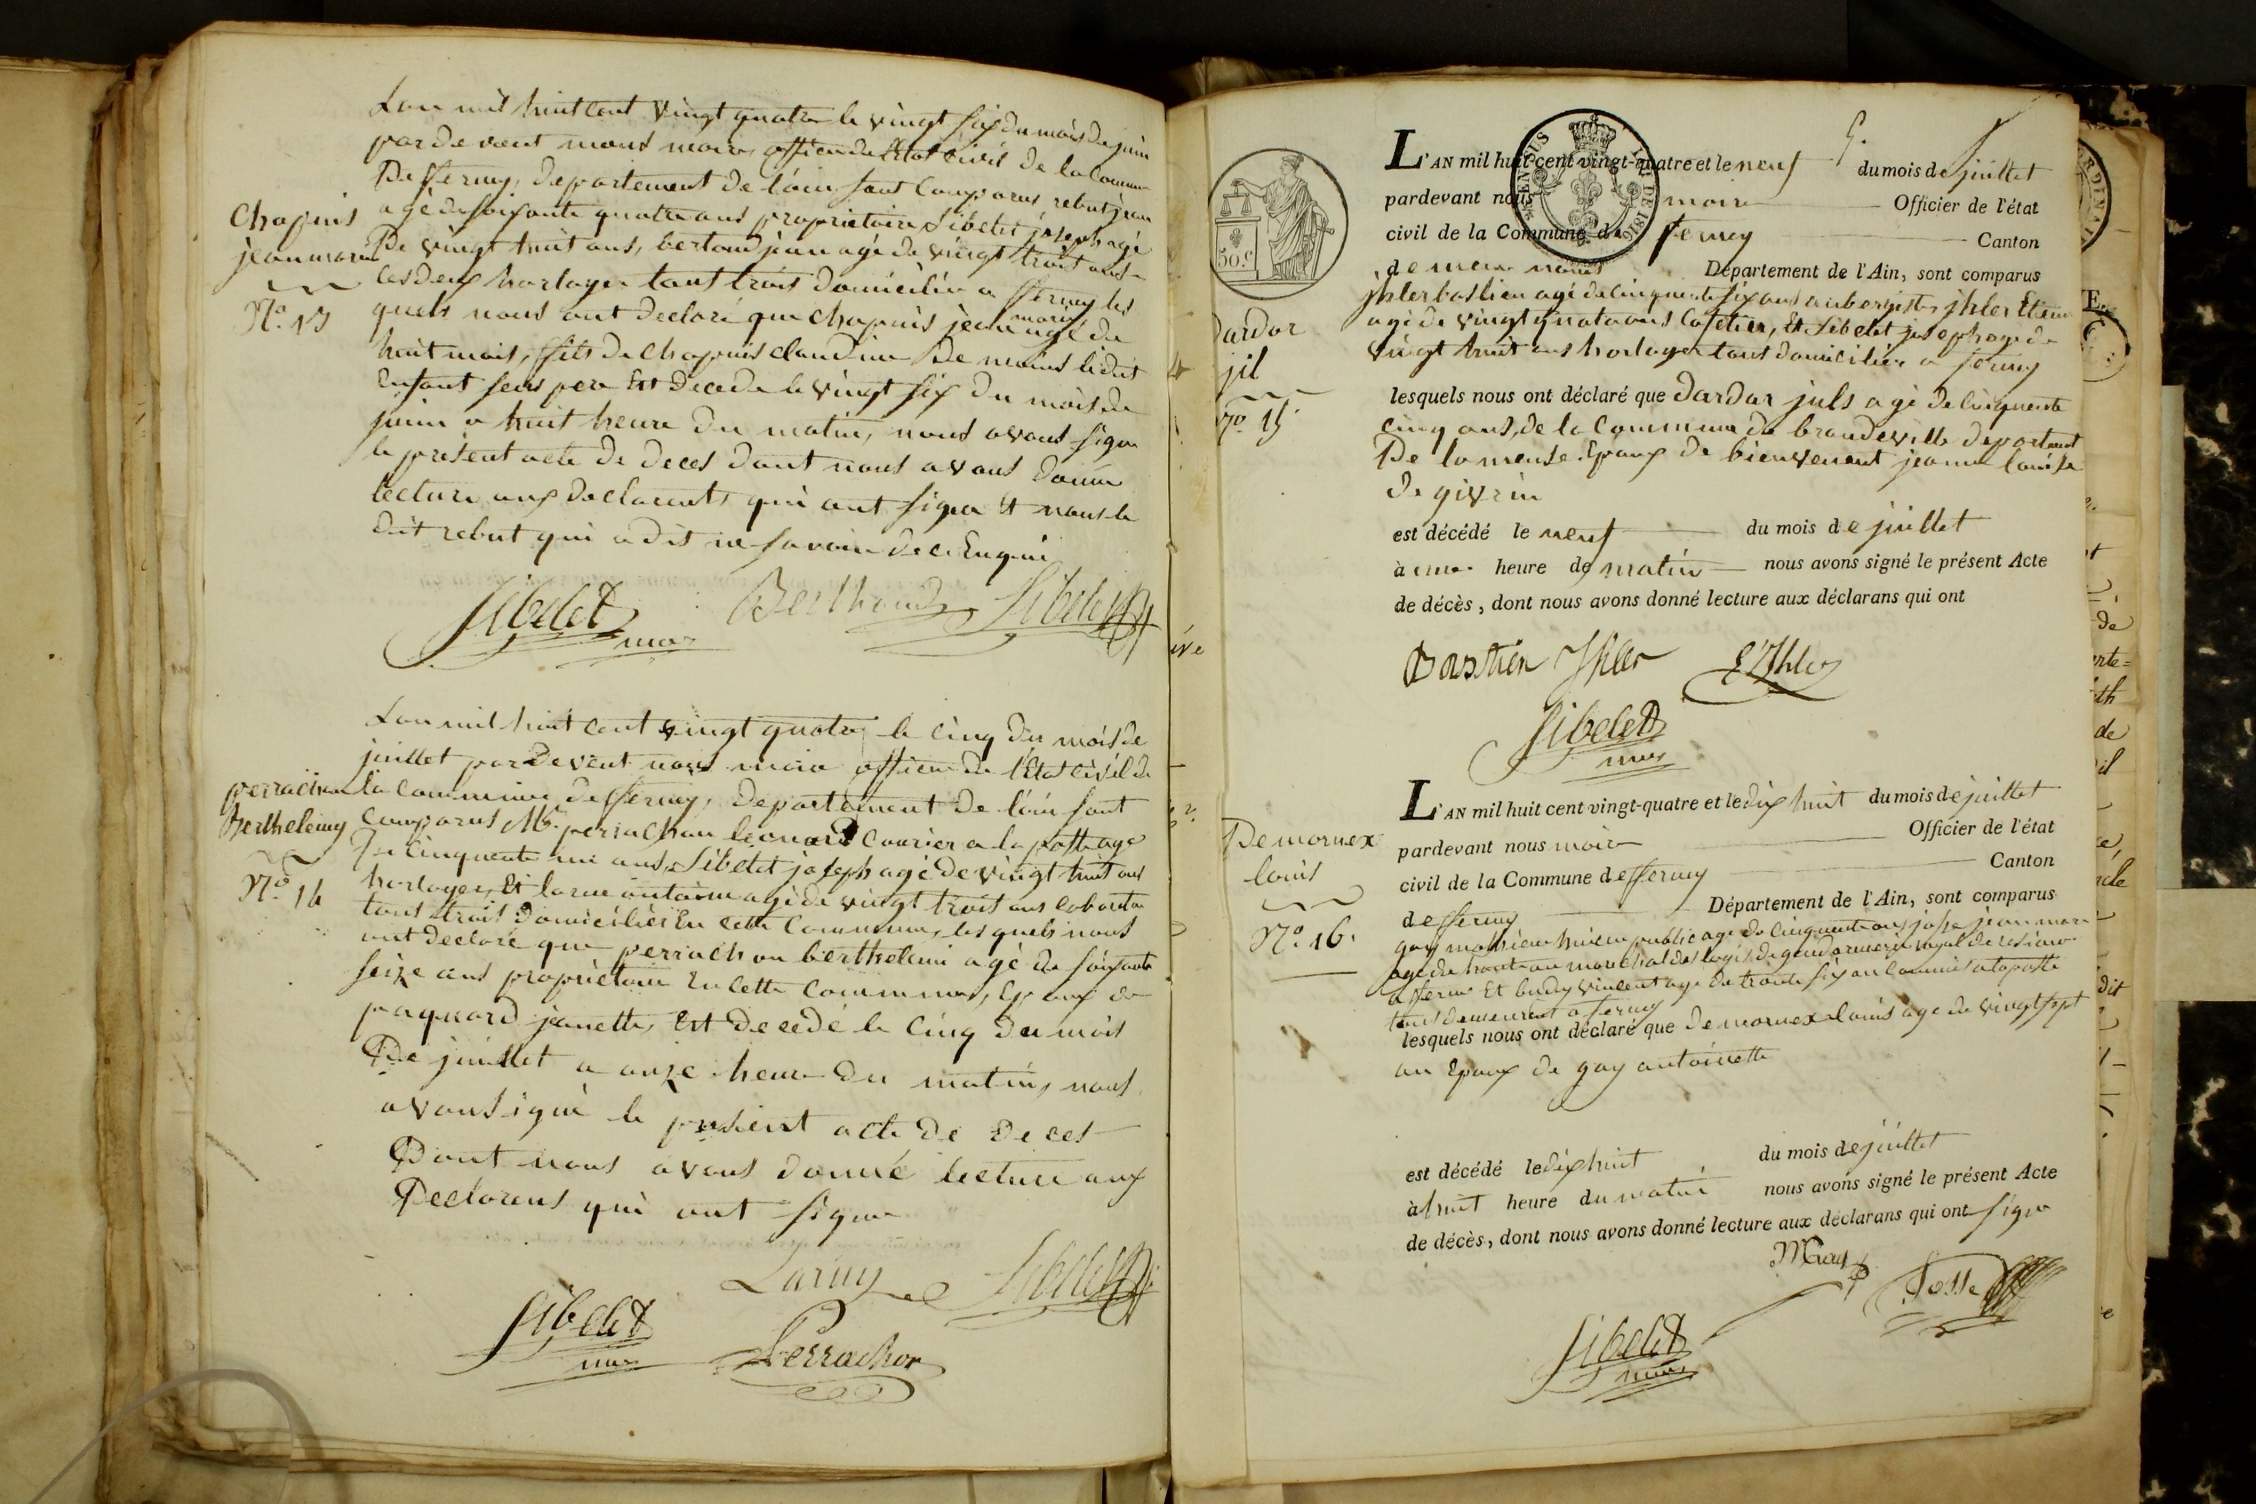 Lan mil huit cent vingt quatre le vingt six du mois de juin
par devant nous maire officier de l'Etat civil de la Commune
De fferney, departement de l'ain sont Comparus rebut jean
agé de soixante quatre ans proprietaire Sibelet joseph agé
De vingt huit ans, bertoud jean agé de vingt trois ans
les deux horloger tous trois domicilié a fferney les
quels nous ont declaré que chapuis jean marie agé de
huit mois, fils de chapuis claudine De moins ledit
Enfant sens pere Est decede le vingt six du mois de
juin a huit heure Du matin, nous avons signe
le présent acte de deces dont nous avons donné
lecture aux declarents qui ont signe et nous le
dit rebut qui a dit ne savoir de ce Enquis
Chapuis
jean marie
No. 13
Sibelet
maire
Berthoud
Sibelet
Lan mil huit cent vingt quatre le cinq du mois de
juillet par devent nous maire officier de l'Etat civil de
la commune de fferney, departement de l'ain sont
Comparus Mr. perrachon leonard courier a la poste age
De cinquante un ans, Sibelet joseph agé de vingt huit ans
horloger, Et larue antoine agé de vingt trois ans
tous trois domiciliés En cette Commune, les quels nous
ont declaré que perrachon berthelemi agé de soixante
seize ans propriétaire En cette commune, Epoux de
paquard janette, Est decedé le cinq du mois
De juillet a onze heure du matin, nous
avons signé le présent acte de deces
Dont nous avons donné lecture aux
Declarens qui ont signe
perrachon
Berthelemy
No. 14
Larüe
Sibelet
Sibelet
maire
Perrachon
L'AN mil huit cent vingt-quatre et le neuf du mois de juillet
pardevant nous maire Officier de l'état
civil de la Commune de ferney Canton
de meme nom Département de l'Ain, sont comparus
jhler bastien agé de cinquante six ans aubergiste, jhler Etienne
agé de vingt quatre ans Cafetier, Et Sibelet joseph agé de
vingt huit ans horloger tous domiciliés a ferney
lesquels nous ont déclaré que dardar juls agé de cinquente
cinq ans, de la Commune de brandeville departement
De la meuse Epoux De bienvenent jeanne louise
de givrin
est décédé le neuf du mois de juillet
à une heure de matin nous avons signé le présent Acte
de décès, dont nous avons donné lecture aux déclarans qui ont
50. c
dardar
jil
No. 15
Bastien Ihler
E Ihler
Sibelet
maire
L'AN mil huit cent vingt-quatre et le dix huit du mois de juillet
pardevant nous maire Officier de l'état
civil de la Commune de fferney Canton
de fferney Département de l'Ain, sont comparus
gay mathieu huissier public age de cinquente ans, josse jean marie
age de trente un marechal des logis de gendarmerie royal de residence
a ferney Et budry vincent age de trente six ans Commis a la poste
tous demeurent a ferney
lesquels nous ont déclaré que demornex louis age de vingt sept
an Epoux de gay antoinette
est décédé le dix huit du mois de juillet
à huit heure du matin nous avons signé le présent Acte
de décès, dont nous avons donné lecture aux déclarans qui ont signe
Demornex
louis
No. 16.
MGay
Josse
Sibelet
maire